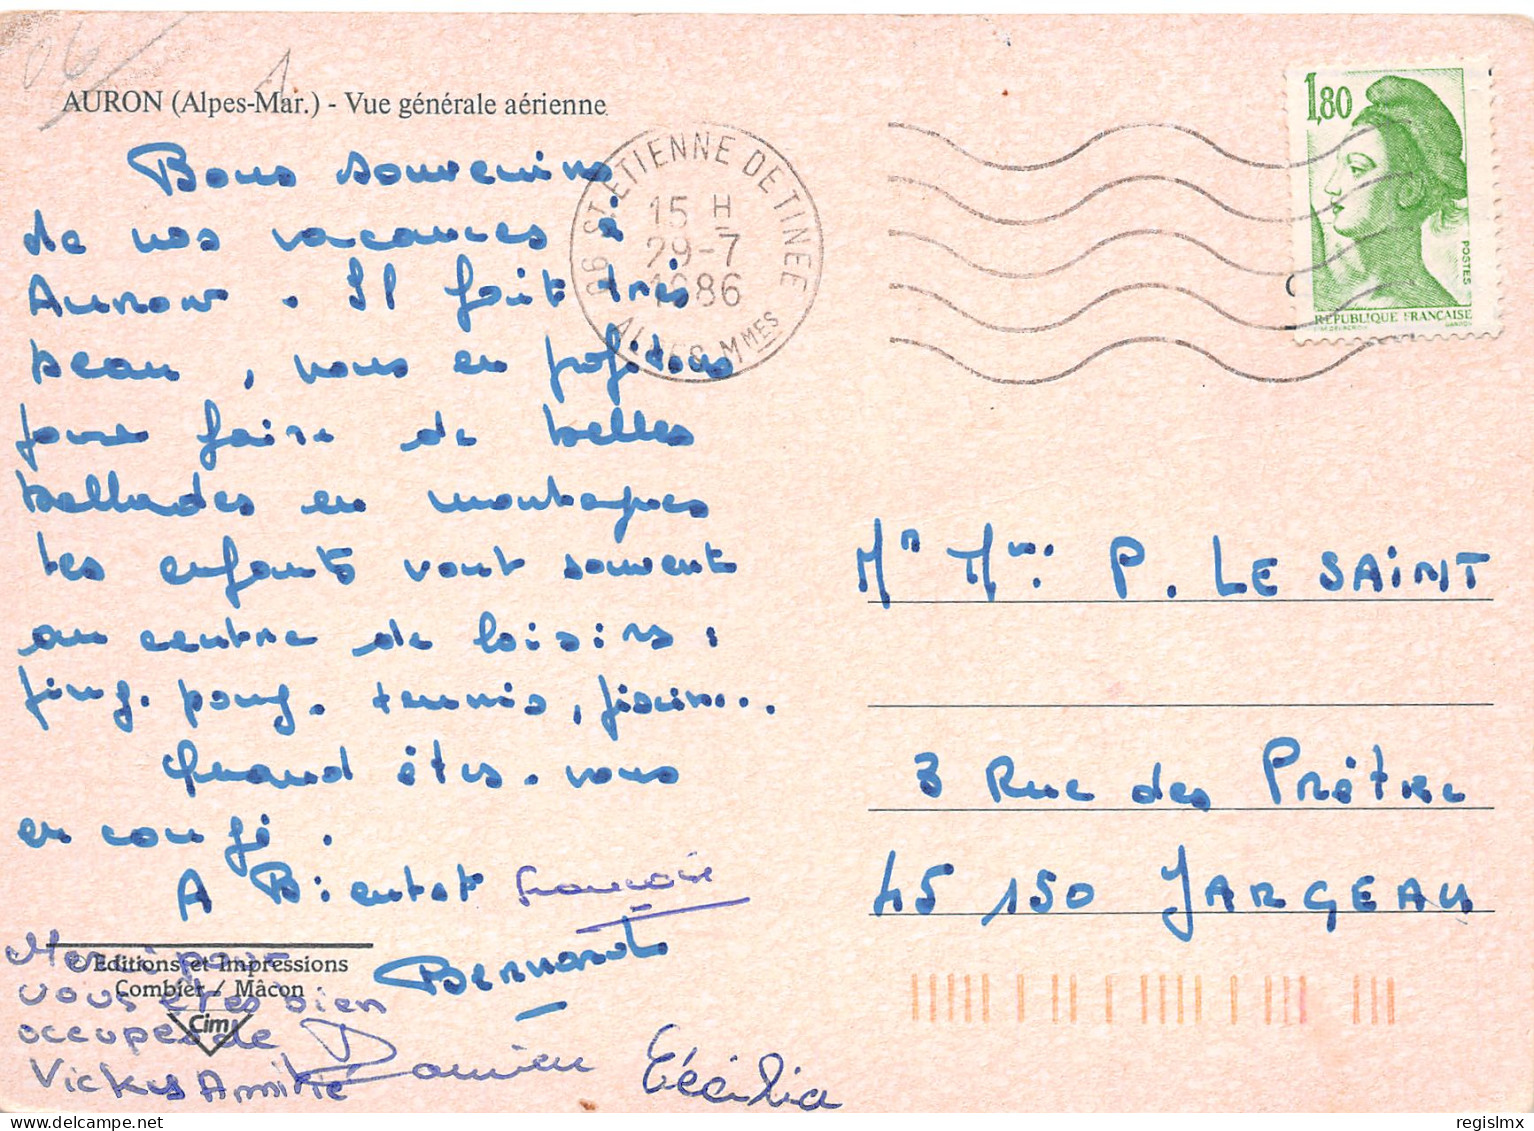 06
AURON (Alpes-Mar.) - Vue générale aérienne
Bons souvenirs
de nos vacances à
Auron. Il fait très
beau, nous en profitons
pour faire de belles
ballades en montagnes
Les enfants vont souvent
au centre de loisirs :
ping-pong. tennis, piscine..
Quand êtes-vous
en congé.
A Bientot Françoise
Bernard
Merci pour
vous êtes bien
occuper de
Vicky Amitié
Damien Cécilia
Editions et Impressions
Combier / Mâcon
Cim
06 ST ETIENNE DE TINEE
15 H
29-7
1986
ALPES MMES
1,80
POSTES
REPUBLIQUE FRANÇAISE
Mr Mme P. LE SAINT
3 Rue des Prêtre
45 150 JARGEAU
regislmx
delcampe.net